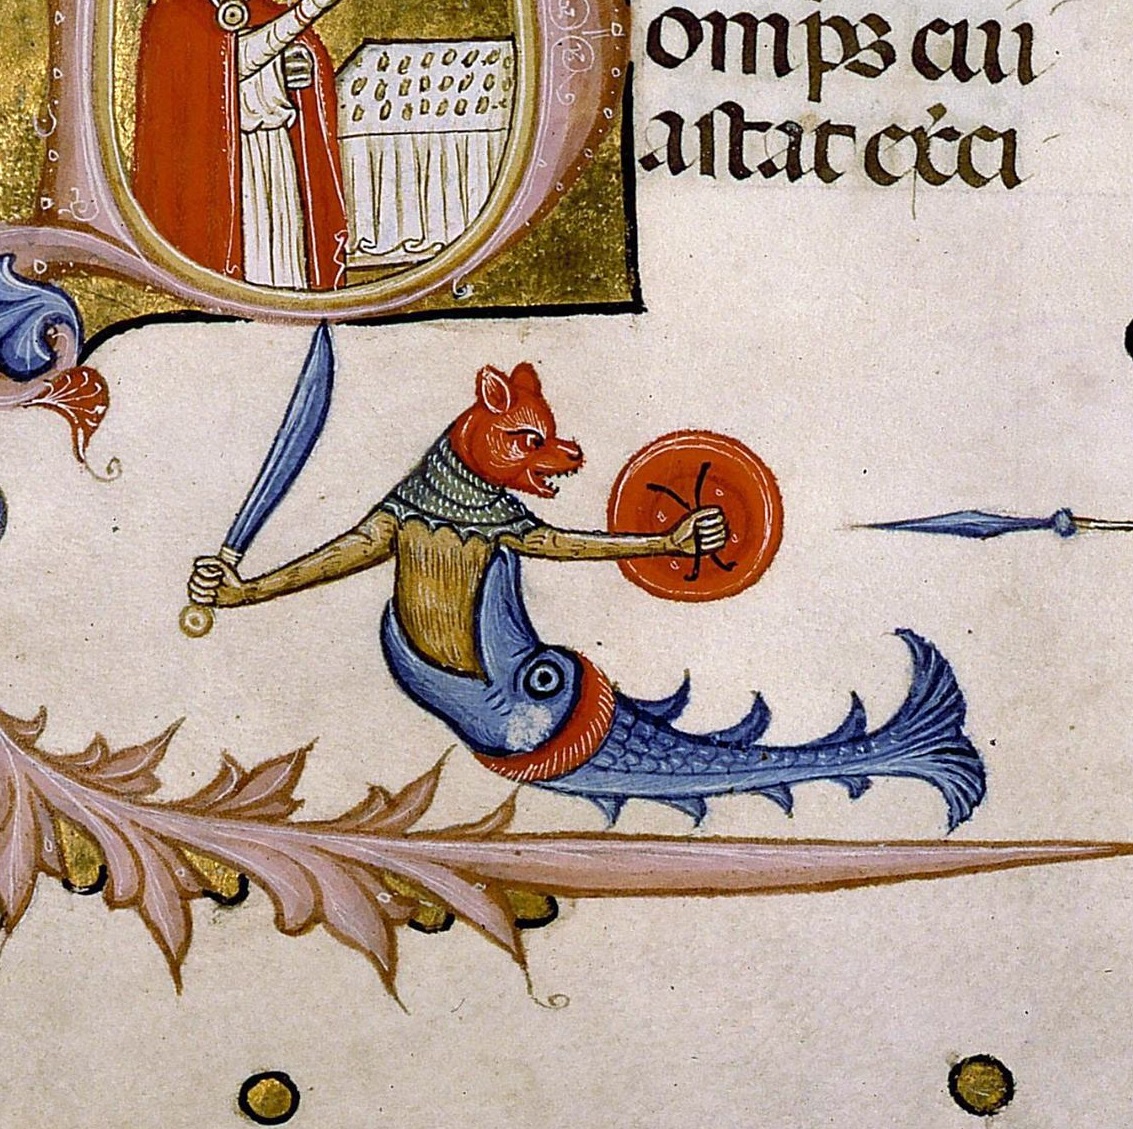 omps cui
astat exci